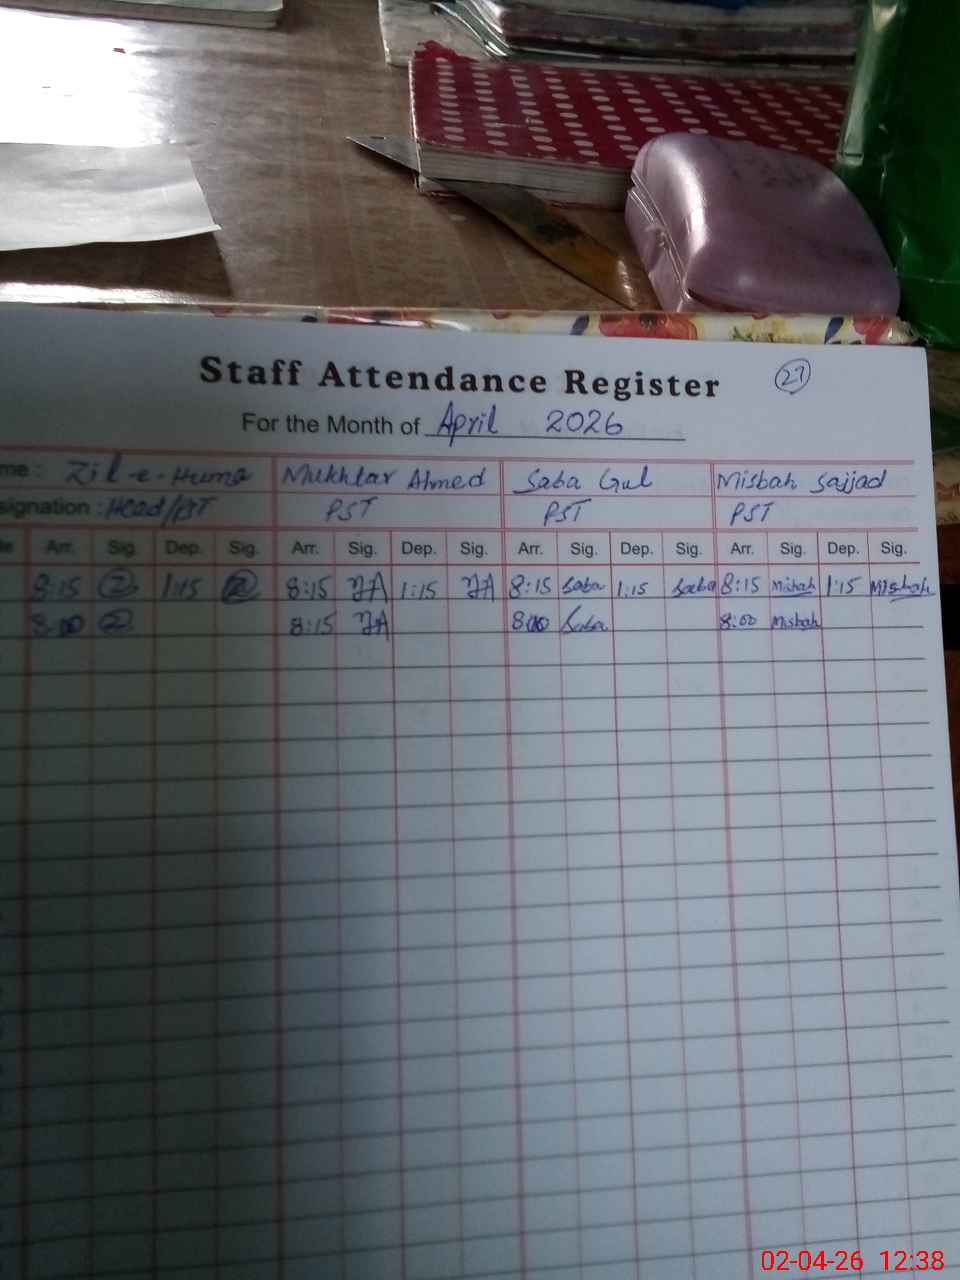 Staff Attendance Register 27
For the Month of April 2026
me : Zil-e-Huma Mukhtar Ahmed Saba Gul Misbah Sajjad
signation : Head/PST PST PST PST
te Arr. Sig. Dep. Sig. Arr. Sig. Dep. Sig. Arr. Sig. Dep. Sig. Arr. Sig. Dep. Sig.
8:15 1:15 8:15 1:15 8:15 Saba 1:15 Saba 8:15 Misbah 1:15 Misbah
8:00 8:15 8:00 Saba 8:00 Misbah
02-04-26 12:38